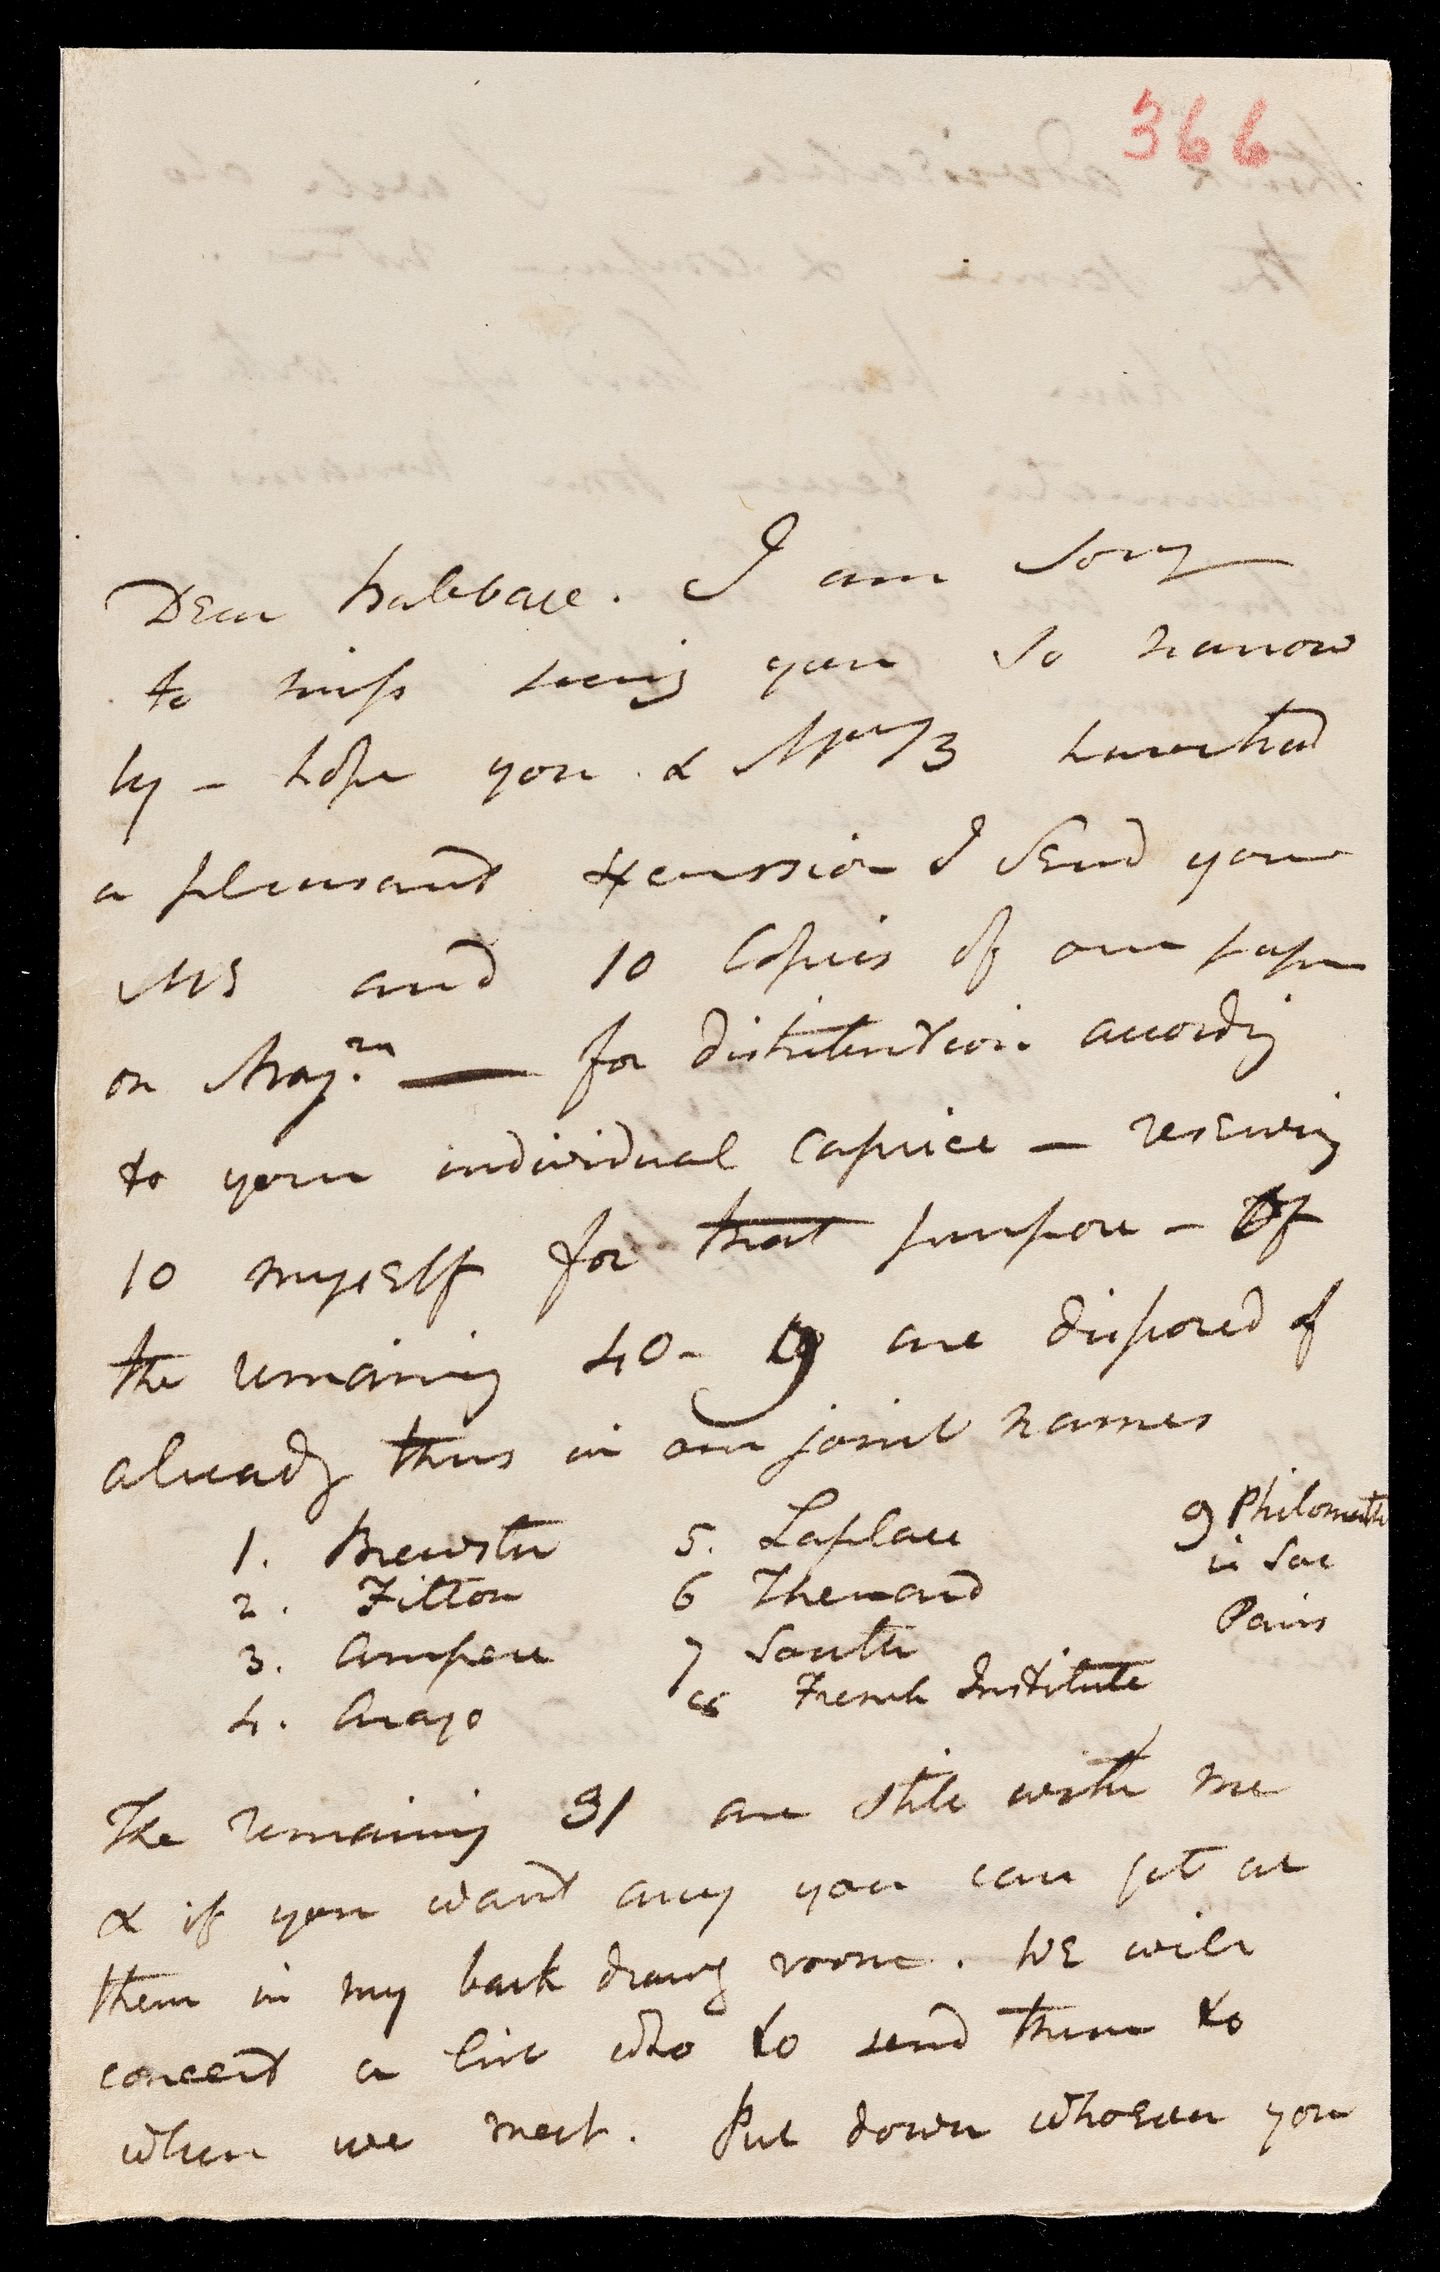 366
Dear Babbage. I am sorry
to miss seeing you so narrow
ly - hope you & Mrs B have had
a pleasant excursion I send your
MS and 10 Copies of our paper
on Magn. — for distribution according
to your individual caprice — reserving
10 myself for that purpose - Of
the remaining 40 - 9 are disposed of
already thus in our joint names
1. Brewster 5. Laplace 9 Philomath
2. Fitton 6 Thenard in Soc
3. Ampere 7 South Paris
4. Arago 8 French Institute
The remaining 31 are still with me
& if you want any you can get at
them in my back drawg room. We will
concert a list who to send them to
when we meet. Put down whoever you